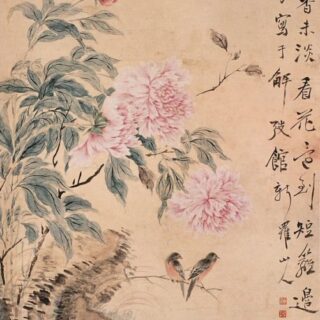 香未淡看花宜到短籬邊
寫于解弢館新羅山人